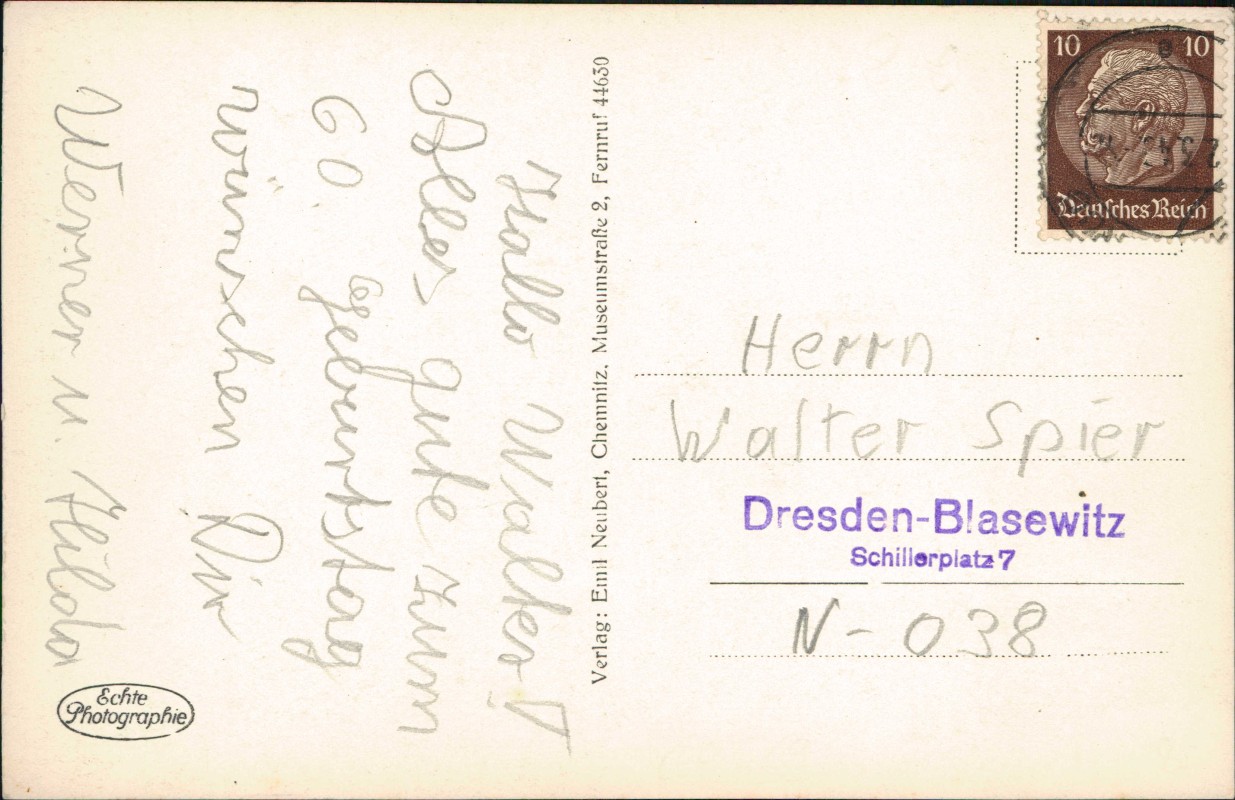 Hallo Walter!
Alles gute zum
60 geburtstag
wünschen Dir
Werner u. Hilda
Echte
Photographie
Verlag: Emil Neubert, Chemnitz, Museumstraße 2, Fernruf 44630
10 10
Deutsches Reich
Herrn
Walter Spier
Dresden-Blasewitz
Schillerplatz 7
N - 038